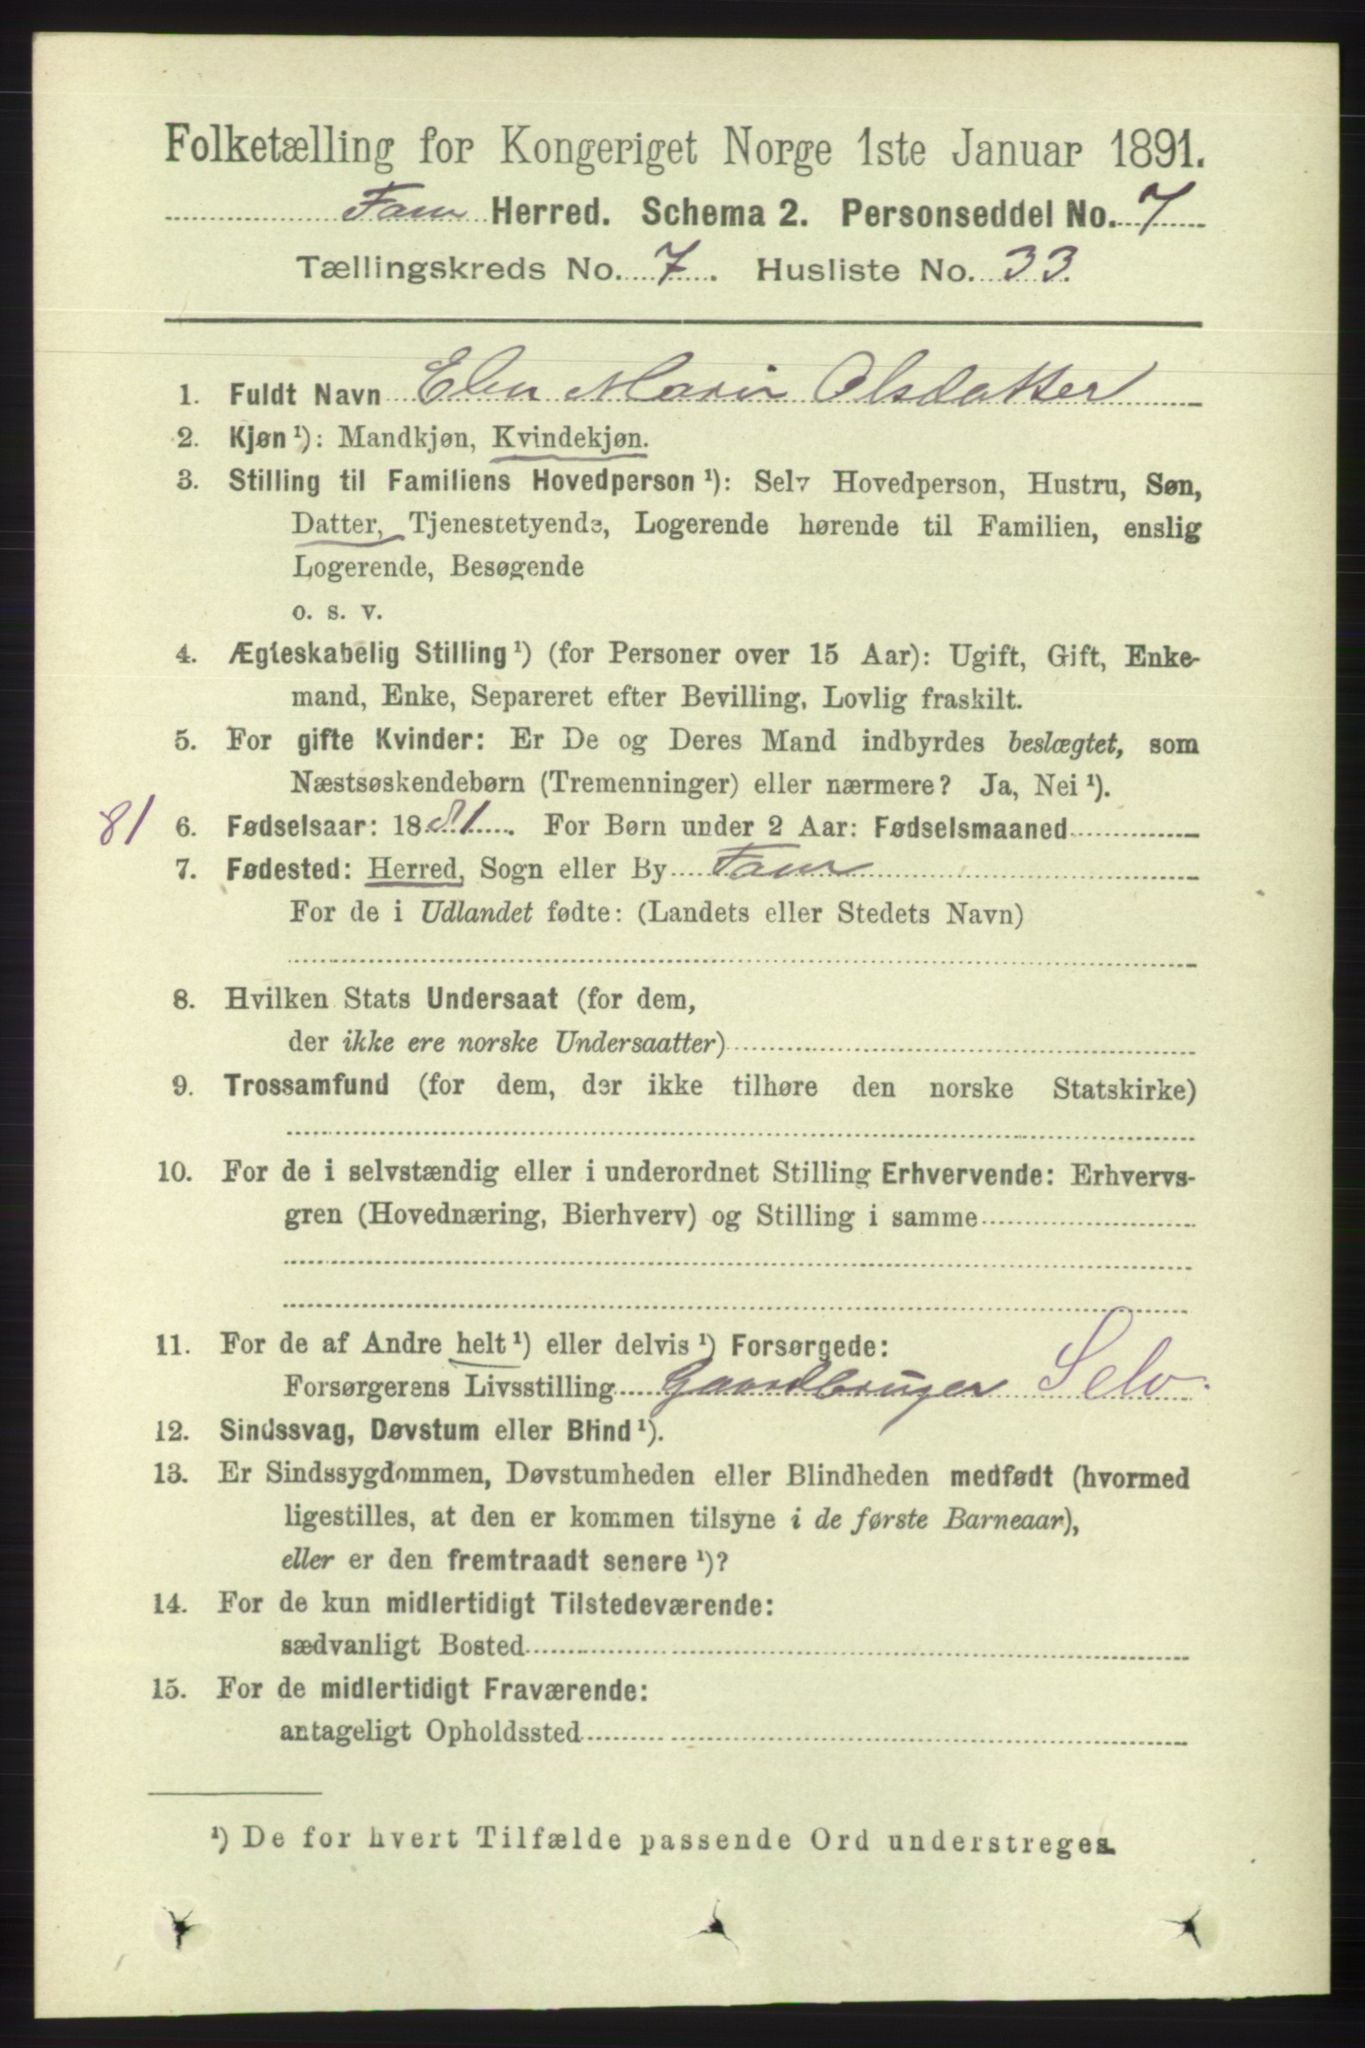 Folketælling for Kongeriget Norge 1ste Januar 1891.
Herred. Schema 2. Personseddel No. 7
Tællingskreds No. 7. Husliste No. 33.
1. Fuldt Navn Elen Marie Olsdatter
2. Kjøn ¹): Mandkjøn, Kvindekjøn.
3. Stilling til Familiens Hovedperson ¹): Selv Hovedperson, Hustru, Søn,
Datter, Tjenestetyende, Logerende hørende til Familien, enslig
Logerende, Besøgende
o. s. v.
4. Ægteskabelig Stilling ¹) (for Personer over 15 Aar): Ugift, Gift, Enke-
mand, Enke, Separeret efter Bevilling, Lovlig fraskilt.
5. For gifte Kvinder: Er De og Deres Mand indbyrdes beslægtet, som
Næstsøskendebørn (Tremenninger) eller nærmere? Ja, Nei ¹).
81 6. Fødselsaar: 1881. For Børn under 2 Aar: Fødselsmaaned
7. Fødested: Herred, Sogn eller By
For de i Udlandet fødte: (Landets eller Stedets Navn)
8. Hvilken Stats Undersaat (for dem,
der ikke ere norske Undersaatter)
9. Trossamfund (for dem, der ikke tilhøre den norske Statskirke)
10. For de i selvstændig eller i underordnet Stilling Erhvervende: Erhvervs-
gren (Hovednæring, Bierhverv) og Stilling i samme
11. For de af Andre helt ¹) eller delvis ¹) Forsørgede:
Forsørgerens Livsstilling Gaardbruger Selv.
12. Sindssvag, Døvstum eller Blind ¹).
13. Er Sindssygdommen, Døvstumheden eller Blindheden medfødt (hvormed
ligestilles, at den er kommen tilsyne i de første Barneaar),
eller er den fremtraadt senere ¹)?
14. For de kun midlertidigt Tilstedeværende:
sædvanligt Bosted
15. For de midlertidigt Fraværende:
antageligt Opholdssted
¹) De for hvert Tilfælde passende Ord understreges.